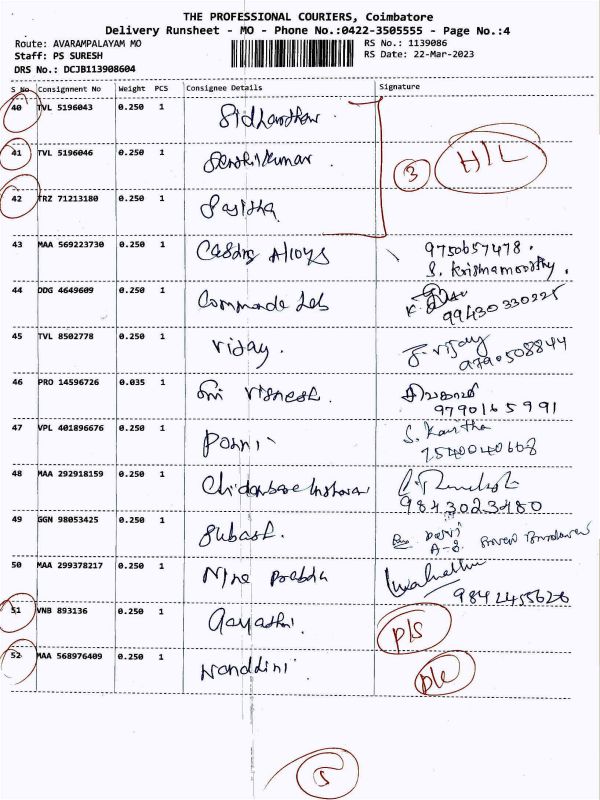 THE PROFESSIONAL COURIERS, Coimbatore
Delivery Runsheet - MO - Phone No.:0422-3505555 - Page No.:4
Route: AVARAMPALAYAM MO
RS No.: 1139086
Staff: PS SURESH
RS Date: 22-Mar-2023
DRS No.: DCJB113908604
S No Consignment No Weight PCS Consignee Details Signature
40 TVL 5196043 0.250 1 Sidharthan
41 TVL 5196046 0.250 1 Senthilkumar 3 H/L
42 TRZ 71213180 0.250 1
43 MAA 569223730 0.250 1 Casting Alloys 9750657478.
S. Krishnamoorthy.
44 DDG 4649609 0.250 1 Commande Lab
99430330225
45 TVL 8502778 0.250 1 Vijay. J. Vijay
9790508844
46 PRO 14596726 0.035 1 Sri Vignesh. சிவகாமி
9790165991
47 VPL 401896676 0.250 1 Ponni S. Kavitha
7540040668
48 MAA 292918159 0.250 1
9843023480
49 GGN 98053425 0.250 1 Subash.
A-8
50 MAA 299378217 0.250 1 Prabha
9842455626
51 VNB 893136 0.250 1 Gayathri. P/S
52 MAA 568976409 0.250 1 Nanddini
5